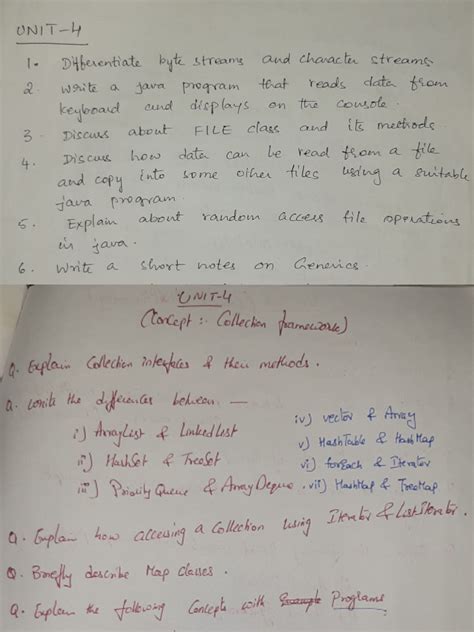 UNIT-4
1. Differentiate byte streams and character streams
2. Write a java program that reads data from
keyboard and displays on the console.
3. Discuss about FILE class and its methods.
4. Discuss how data can be read from a file
and copy into some other files using a suitable
java program.
5. Explain about random access file operations
in java.
6. Write a short notes on Generics.
UNIT-4
(Concept :- Collection framework)
Q. Explain Collection interfaces & their methods.
Q. Write the differences between —
i) ArrayList & LinkedList
ii) HashSet & TreeSet
iii) PriorityQueue & ArrayDeque
iv) vector & Array
v) HashTable & HashMap
vi) forEach & Iterator
vii) HashMap & TreeMap
Q. Explain how accessing a Collection using Iterator & ListIterator.
Q. Briefly describe Map classes.
Q. Explain the following Concepts with Programs